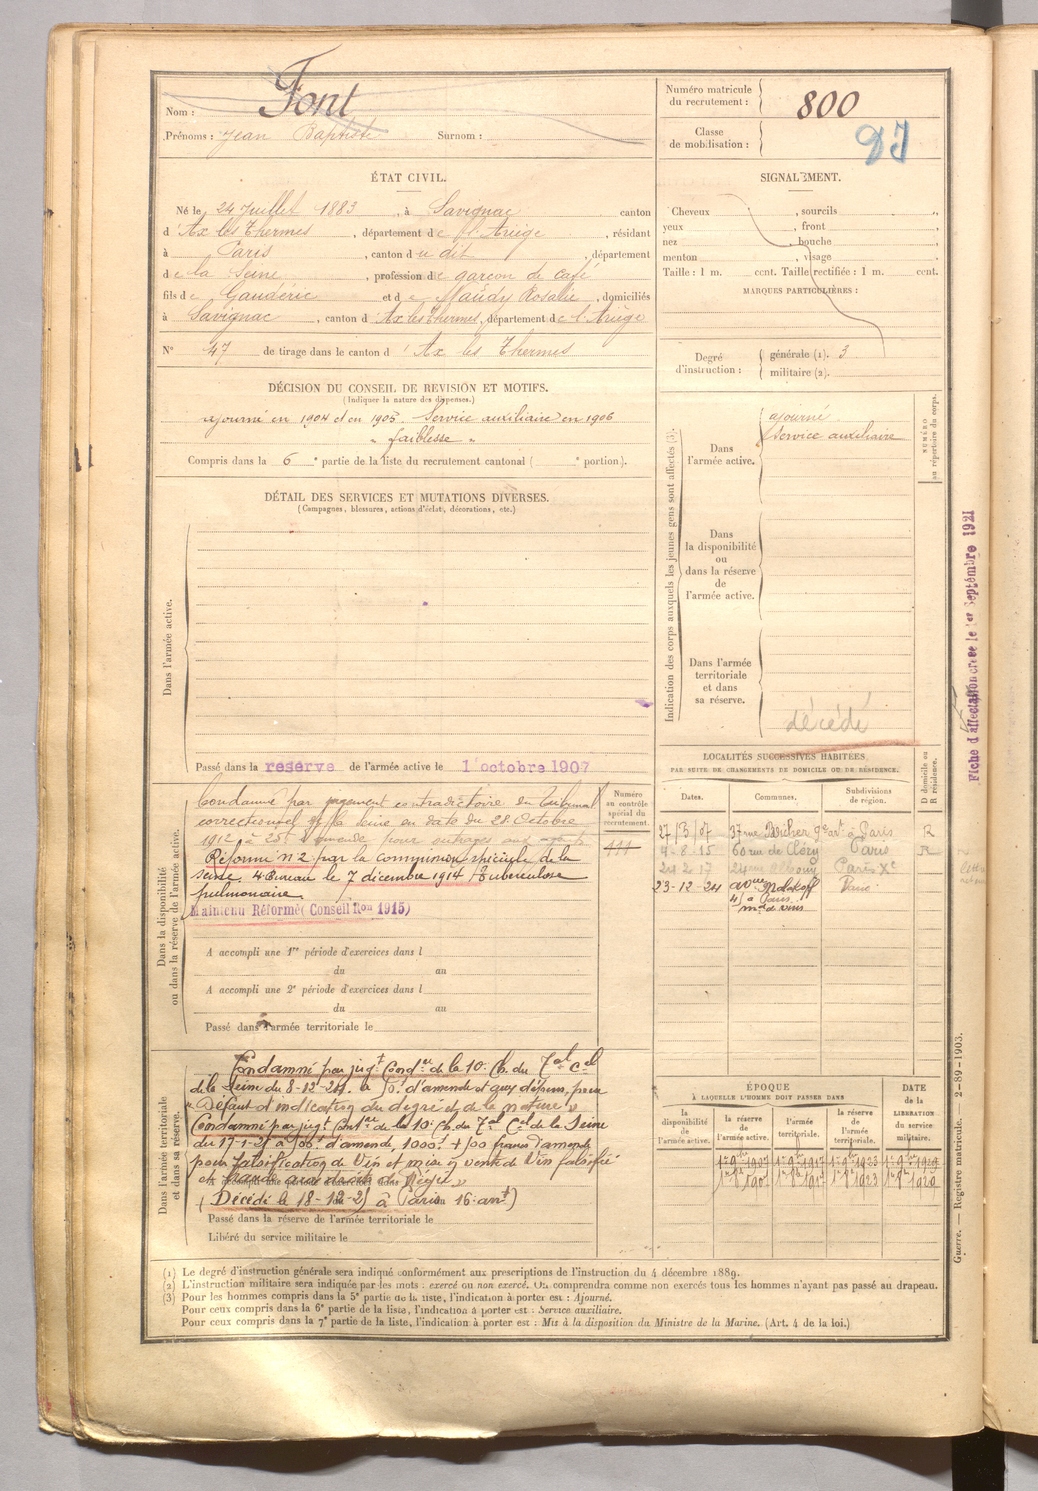 Nom : Font
Prénoms : Jean Baptiste Surnom :
Numéro matricule du recrutement : 800
Classe de mobilisation :
ÉTAT CIVIL.
Né le 24 Juillet 1883, à Savignac canton
d' Ax les Thermes, département de l'Ariège, résidant
à Paris, canton du dit, département
de la Seine, profession de garçon de café
fils de Gaudéric et de Maüdy Rosalie, domiciliés
à Savignac, canton d'Ax les Thermes, département de l'Ariège
N° 47 de tirage dans le canton d'Ax les Thermes
SIGNALEMENT.
Cheveux , sourcils ,
yeux , front ,
nez , bouche ,
menton , visage
Taille : 1 m. cent. Taille rectifiée : 1 m. cent.
MARQUES PARTICULIÈRES :
Degré d'instruction : générale (1). 3
militaire (2).
DÉCISION DU CONSEIL DE REVISION ET MOTIFS.
(Indiquer la nature des dispenses.)
ajourné en 1904 et en 1905. Service auxiliaire en 1906
" faiblesse "
Compris dans la 6e partie de la liste du recrutement cantonal ( e portion).
DÉTAIL DES SERVICES ET MUTATIONS DIVERSES.
(Campagnes, blessures, actions d'éclat, décorations, etc.)
Dans l'armée active.
Passé dans la réserve de l'armée active le 1 octobre 1907
Indication des corps auxquels les jeunes gens sont affectés (3).
NUMÉRO au répertoire du corps.
Dans l'armée active.
ajourné
Service auxiliaire
Dans la disponibilité ou dans la réserve de l'armée active.
Dans l'armée territoriale et dans sa réserve.
décédé
Fiche d'affectation créée le 1er Septembre 1921
Dans la disponibilité ou dans la réserve de l'armée active.
Condamné par jugement contradictoire du Tribunal
correctionnel de la Seine en date du 28 Octobre
1912 à 25f d'amende pour outrages aux
Réformé n° 2 par la commission spéciale de la
Seine 4e Bureau le 7 décembre 1914 Tuberculose
pulmonaire
Maintenu Réformé (Conseil Ron 1915)
A accompli une 1re période d'exercices dans l
du au
A accompli une 2e période d'exercices dans l
du au
Passé dans l'armée territoriale le
Numéro au contrôle spécial du recrutement.
LOCALITÉS SUCCESSIVES HABITÉES,
PAR SUITE DE CHANGEMENTS DE DOMICILE OU DE RÉSIDENCE.
Dates. Communes. Subdivisions de région. D domicile ou R résidence.
27/3/07 37 rue Richer 9e art à Paris R
4-8-15 60 rue de Clichy Paris R
24 2 17 Paris Xe
23-12-24 avue Malakoff Paris
41 à Paris
md de vins
Dans l'armée territoriale et dans sa réserve.
Condamné par jugt Cond. de la 10e Ch. du Tal Cel
de la Seine du 8-12-24 à 50f d'amende et aux dépens, pour
"Défaut d'indication du degré et de la nature"
Condamné par jugt Contre de la 10e Ch. du Tal Cel de la Seine
du 17-1-25 à 500f d'amende, 1000f + 500 francs d'amende
pour falsification de Vin et mise en vente de Vin falsifié
et fraude aux droits de Régie"
(Décédé le 18-12-25 à Paris 16e arrt)
Passé dans la réserve de l'armée territoriale le
Libéré du service militaire le
ÉPOQUE
À LAQUELLE L'HOMME DOIT PASSER DANS
la disponibilité de l'armée active.
la réserve de l'armée active.
l'armée territoriale.
la réserve de l'armée territoriale.
DATE de la LIBÉRATION du service militaire.
1er 9bre 1907 1er 9bre 1917 1er 9bre 1923 1er 9bre 1929
(1) Le degré d'instruction générale sera indiqué conformément aux prescriptions de l'instruction du 4 décembre 1889.
(2) L'instruction militaire sera indiquée par les mots : exercé ou non exercé. On comprendra comme non exercés tous les hommes n'ayant pas passé au drapeau.
(3) Pour les hommes compris dans la 5e partie de la liste, l'indication à porter est : Ajourné.
Pour ceux compris dans la 6e partie de la liste, l'indication à porter est : Service auxiliaire.
Pour ceux compris dans la 7e partie de la liste, l'indication à porter est : Mis à la disposition du Ministre de la Marine. (Art. 4 de la loi.)
Guerre. — Registre matricule. — 2-89-1903.